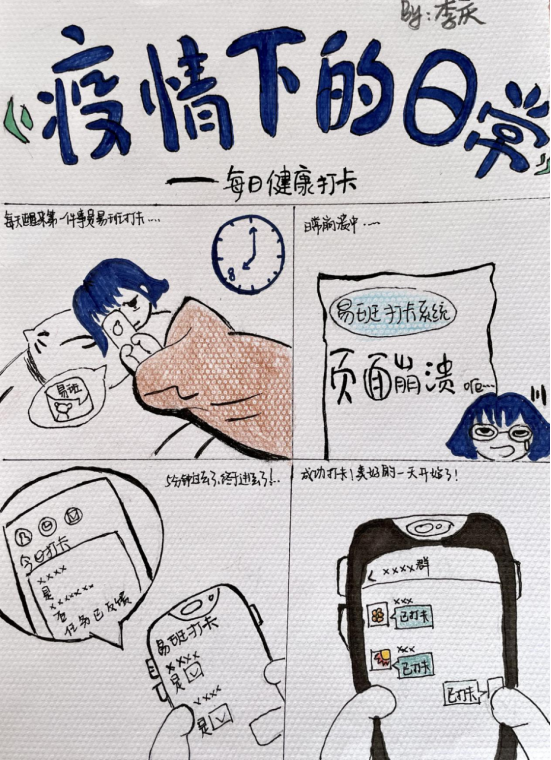 By:李庆
疫情下的日常
——每日健康打卡
每天醒来第一件事是易班打卡....
8
易班
日常崩溃中....
易班打卡系统
页面崩溃 呃...
5分钟过去了,终于进去了!..
今日打卡
xxxx
是
xxxxxx
否
任务已反馈
易班打卡
xxxx
是
xxxx
是
成功打卡!美好的一天开始了!
xxxx群
xxx
已打卡
xxx
已打卡
已打卡